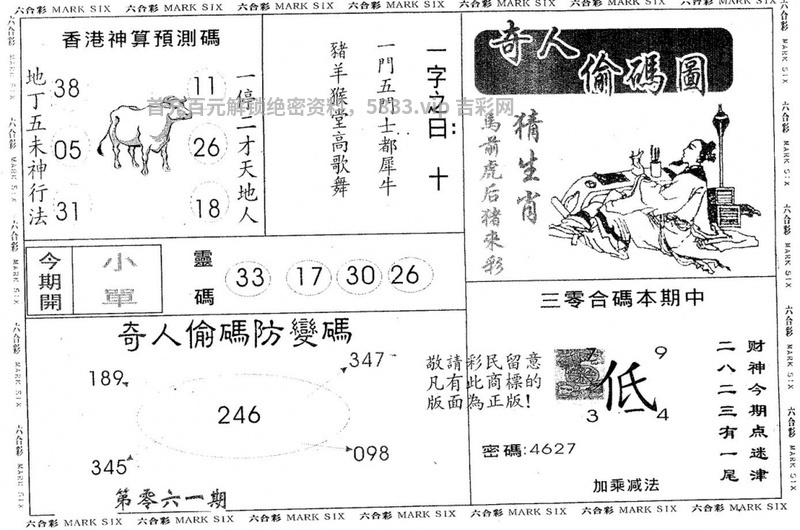 六合彩 MARK SIX 六合彩 MARK SIX 六合彩 MARK SIX 六合彩 MARK SIX 六合彩 MARK SIX 六合彩 MARK SIX 六合彩 MARK SIX
香港神算預測碼
地丁五未神行法
38
05
31
11
26
18
一停二才天地人
一字之曰：十
一門五門士都犀牛
豬羊猴堂高歌舞
奇人偷碼圖
猜生肖
馬前虎后豬來彩
首充百元解锁绝密资料，5333.vip 吉彩网
今期開
小單
靈碼
33 17 30 26
奇人偷碼防變碼
189
347
246
345
098
第零六一期
敬請彩民留意
凡有此商標的
版面為正版!
三零合碼本期中
7 9
低
3 4
密碼:4627
加乘减法
财神今期点迷津
二八二三有一尾
六合彩 MARK SIX 六合彩 MARK SIX 六合彩 MARK SIX 六合彩 MARK SIX 六合彩 MARK SIX 六合彩 MARK SIX 六合彩 MARK SIX